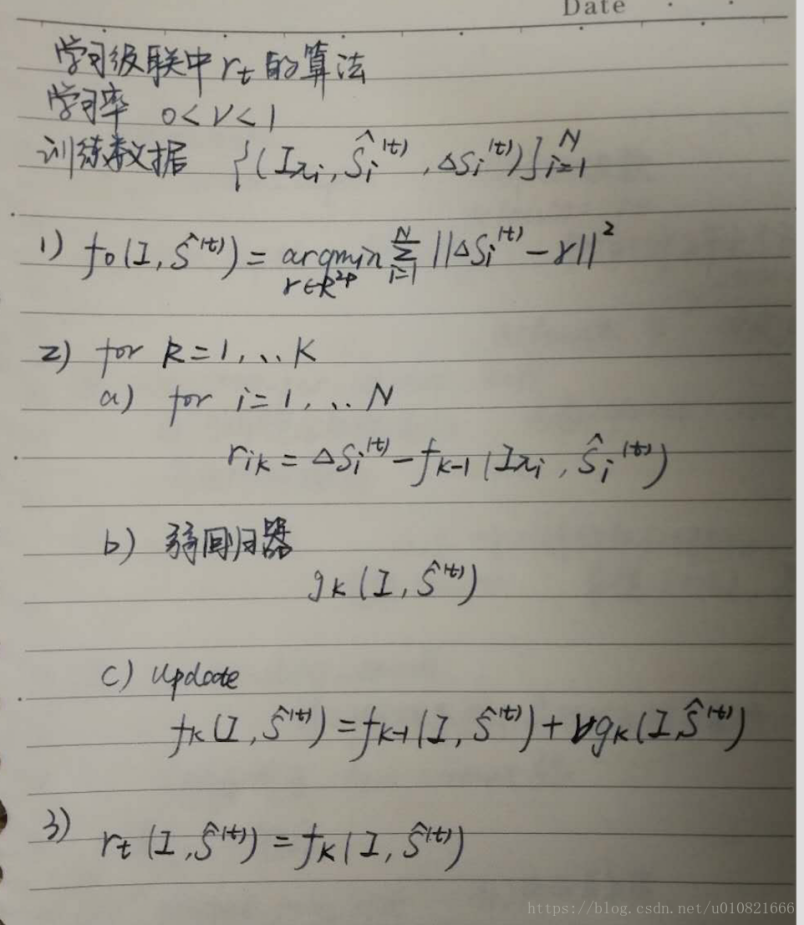 Date
学习级联中 r_t 的算法
学习率 0<ν<1
训练数据 {(I_{πi}, Ŝ_i^{(t)}, ΔS_i^{(t)})}_{i=1}^N
1) f_0(I, Ŝ^{(t)}) = argmin_{γ∈R^{2p}} Σ_{i=1}^N ||ΔS_i^{(t)} - γ||^2
2) for k=1,...K
a) for i=1,...N
r_{ik} = ΔS_i^{(t)} - f_{k-1}(I_{πi}, Ŝ_i^{(t)})
b) 弱回归器
g_k(I, Ŝ^{(t)})
c) update
f_k(I, Ŝ^{(t)}) = f_{k-1}(I, Ŝ^{(t)}) + νg_k(I, Ŝ^{(t)})
3) r_t(I, Ŝ^{(t)}) = f_k(I, Ŝ^{(t)})
https://blog.csdn.net/u010821666